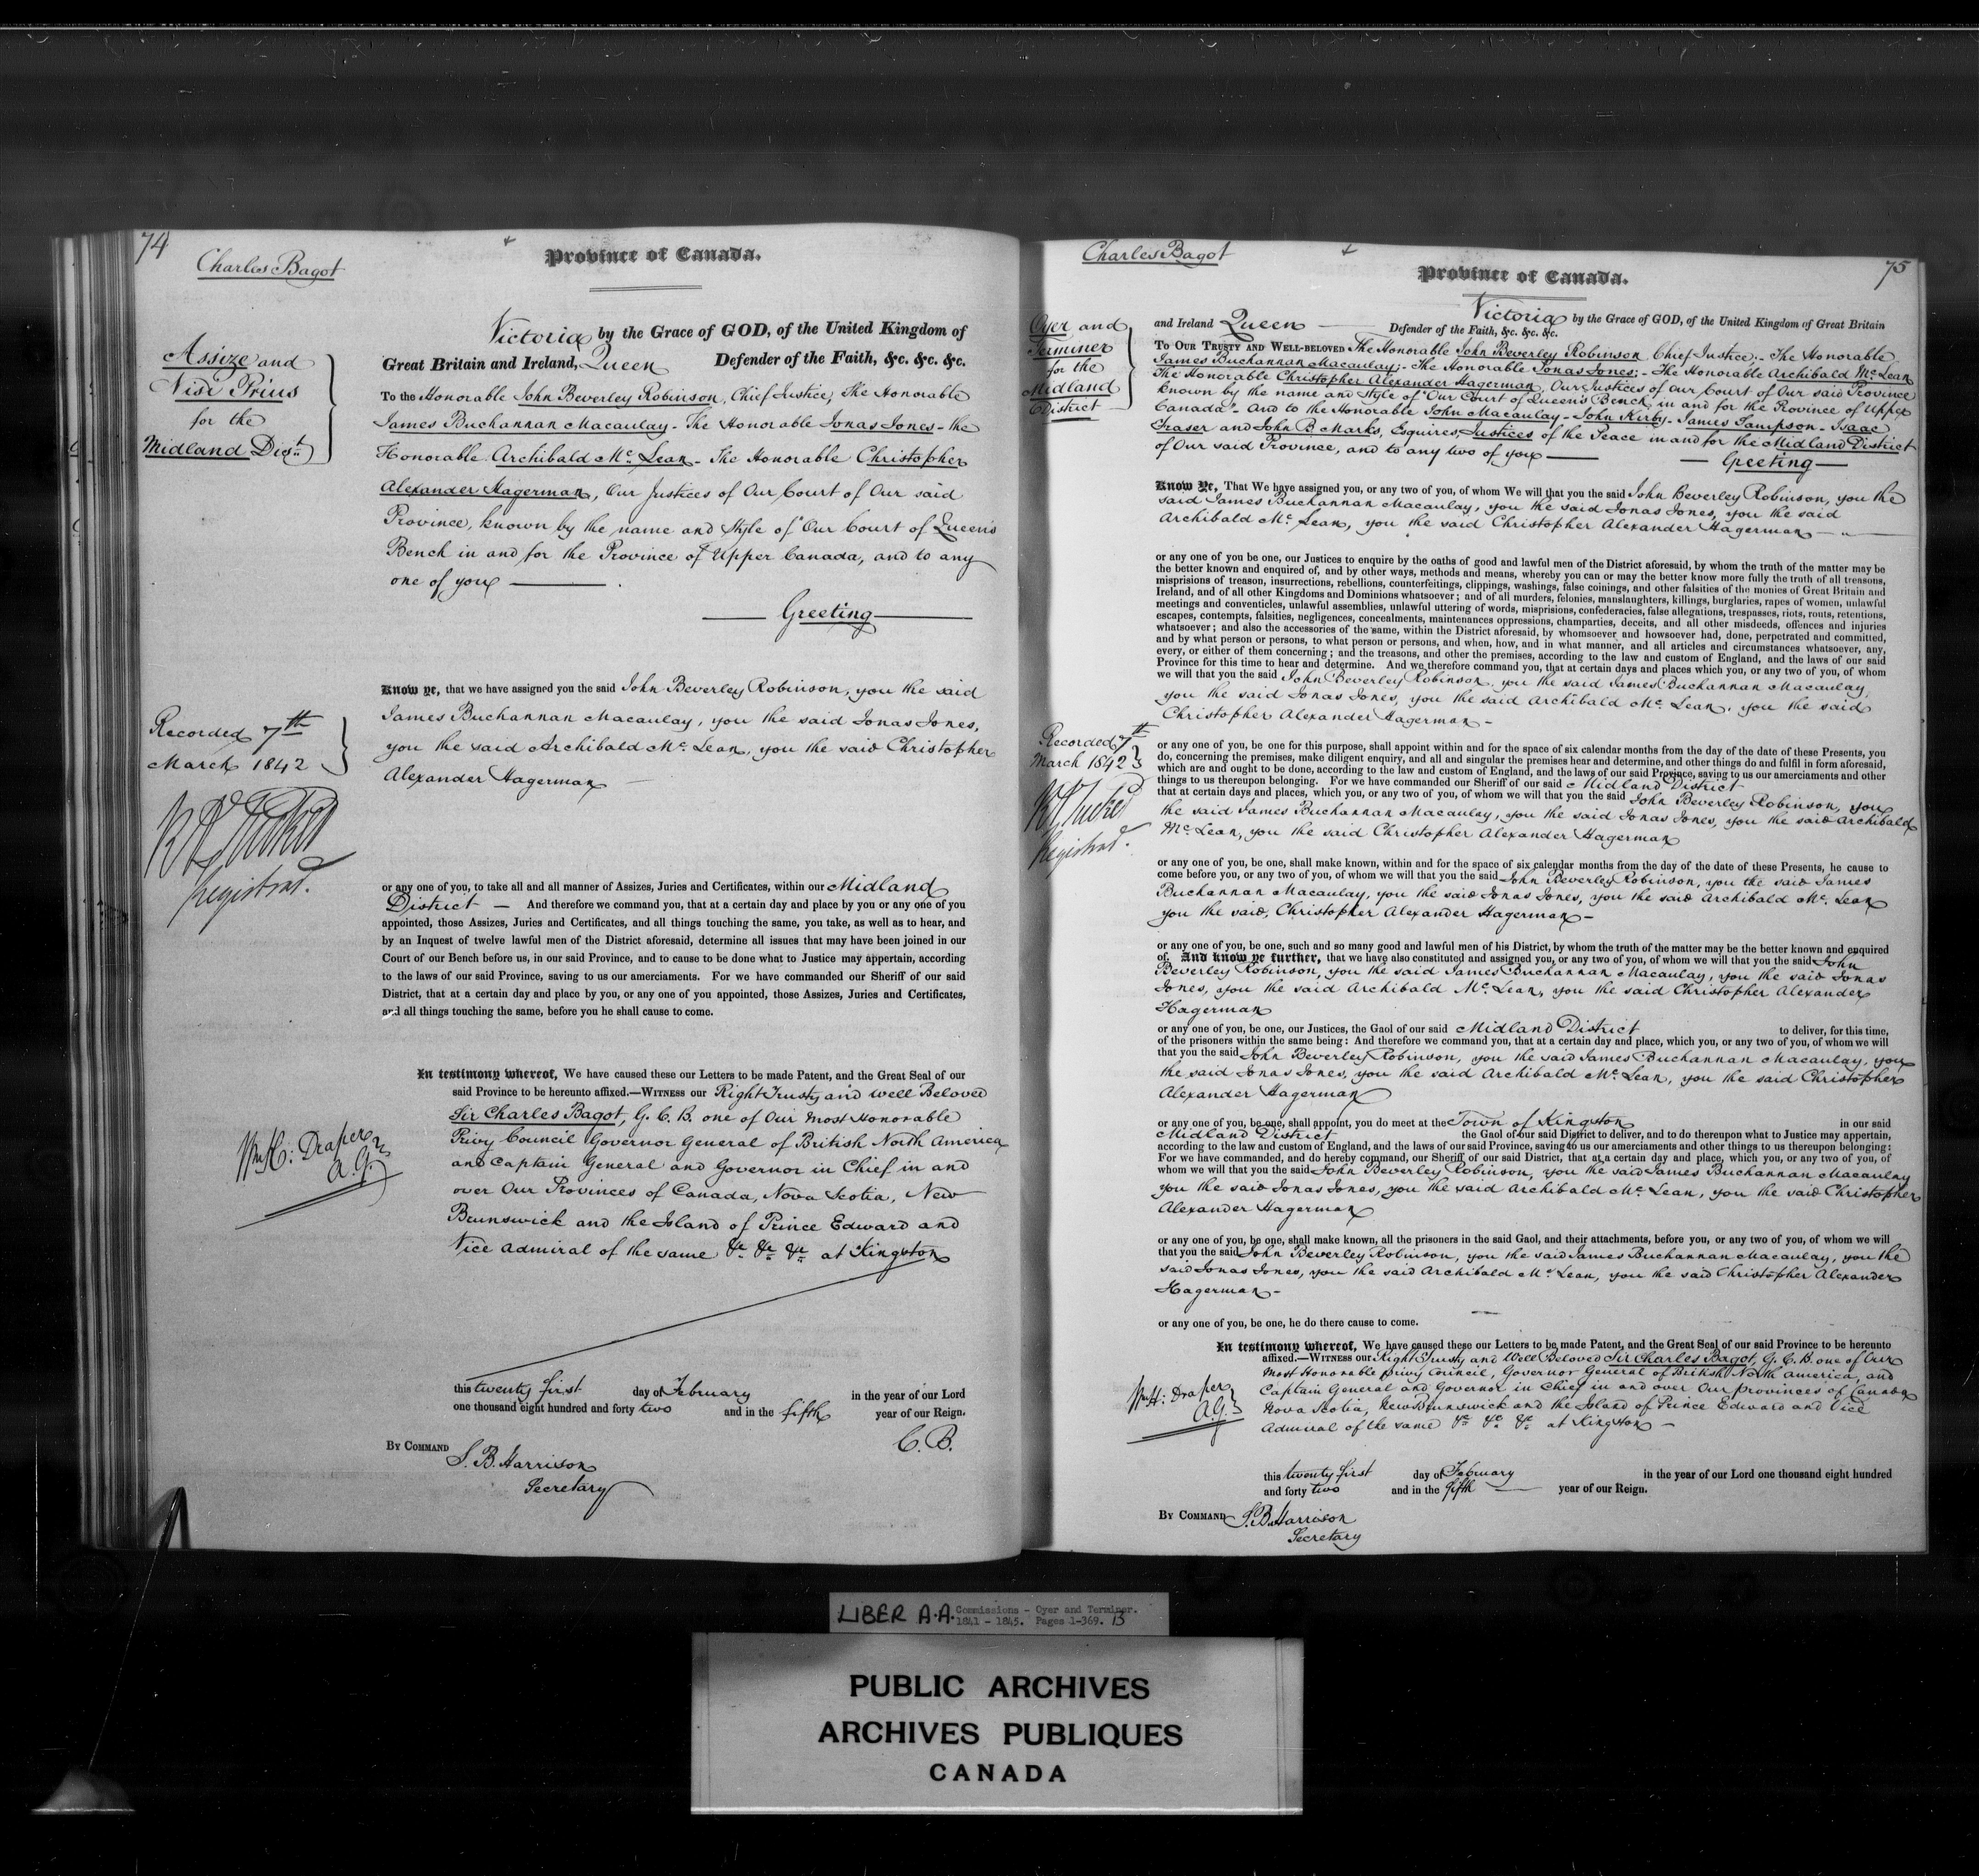 74
Charles Bagot
Province of Canada.
Assize and
Nisi Prius
for the
Midland Dist.
Victoria by the Grace of GOD, of the United Kingdom of
Great Britain and Ireland, Queen Defender of the Faith, &c. &c. &c.
To the Honorable John Beverley Robinson, Chief Justice; The Honorable
James Buchannan Macaulay - The Honorable Jonas Jones - the
Honorable Archibald Mc. Lean - The Honorable Christopher
Alexander Hagerman, Our Justices of Our Court of Our said
Province, known by the name and Style of "Our Court of Queen's
Bench in and for the Province of Upper Canada, and to any
one of you
Greeting
Know ye, that we have assigned you the said John Beverley Robinson, you the said
James Buchannan Macaulay, you the said Jonas Jones,
you the said Archibald Mc. Lean, you the said Christopher
Alexander Hagerman
Recorded 7th
March 1842
Registrar.
or any one of you, to take all and all manner of Assizes, Juries and Certificates, within our Midland
District — And therefore we command you, that at a certain day and place by you or any one of you
appointed, those Assizes, Juries and Certificates, and all things touching the same, you take, as well as to hear, and
by an Inquest of twelve lawful men of the District aforesaid, determine all issues that may have been joined in our
Court of our Bench before us, in our said Province, and to cause to be done what to Justice may appertain, according
to the laws of our said Province, saving to us our amerciaments. For we have commanded our Sheriff of our said
District, that at a certain day and place by you, or any one of you appointed, those Assizes, Juries and Certificates,
and all things touching the same, before you he shall cause to come.
In testimony whereof, We have caused these our Letters to be made Patent, and the Great Seal of our
said Province to be hereunto affixed.—WITNESS our Right Trusty and well Beloved
Sir Charles Bagot, G. C. B. one of Our Most Honorable
Privy Council Governor General of British North America
and Captain General and Governor in Chief in and
over Our Provinces of Canada, Nova Scotia, New
Brunswick and the Island of Prince Edward and
Vice Admiral of the same &c &c &c at Kingston
Wm. H: Draper
A.G.
this twenty first day of February in the year of our Lord
one thousand eight hundred and forty two and in the fifth year of our Reign.
C. B.
BY COMMAND
S. B. Harrison
Secretary
75
Charles Bagot
Province of Canada.
Oyer and
Terminer
for the
Midland
District
Victoria by the Grace of GOD, of the United Kingdom of Great Britain
and Ireland Queen Defender of the Faith, &c. &c. &c.
TO OUR TRUSTY AND WELL-BELOVED The Honorable John Beverley Robinson, Chief Justice;- The Honorable
James Buchannan Macaulay;- The Honorable Jonas Jones;- The Honorable Archibald Mc. Lean
The Honorable Christopher Alexander Hagerman, Our Justices of our Court of Our said Province
known by the name and Style of "Our Court of Queen's Bench in and for the Province of Upper
Canada"- And to the Honorable John Macaulay - John Kirby - James Sampson - Isaac
Fraser and John B Marks, Esquires, Justices of the Peace in and for the Midland District
of Our said Province, and to any two of you
Greeting
Know ye, That We have assigned you, or any two of you, of whom We will that you the said John Beverley Robinson, you the
said James Buchannan Macaulay, you the said Jonas Jones, you the said
Archibald Mc. Lean, you the said Christopher Alexander Hagerman
or any one of you be one, our Justices to enquire by the oaths of good and lawful men of the District aforesaid, by whom the truth of the matter may be
the better known and enquired of, and by other ways, methods and means, whereby you can or may the better know more fully the truth of all treasons,
misprisions of treason, insurrections, rebellions, counterfeitings, clippings, washings, false coinings, and other falsities of the monies of Great Britain and
Ireland, and of all other Kingdoms and Dominions whatsoever; and of all murders, felonies, manslaughters, killings, burglaries, rapes of women, unlawful
meetings and conventicles, unlawful assemblies, unlawful uttering of words, misprisions, confederacies, false allegations, trespasses, riots, routs, retentions,
escapes, contempts, falsities, negligences, concealments, maintenances oppressions, champarties, deceits, and all other misdeeds, offences and injuries
whatsoever; and also the accessories of the same, within the District aforesaid, by whomsoever and howsoever had, done, perpetrated and committed,
and by what person or persons, to what person or persons, and when, how, and in what manner, and all articles and circumstances whatsoever, any,
every, or either of them concerning; and the treasons, and other the premises, according to the law and custom of England, and the laws of our said
Province for this time to hear and determine. And we therefore command you, that at certain days and places which you, or any two of you, of whom
we will that you the said John Beverley Robinson, you the said James Buchannan Macaulay,
you the said Jonas Jones, you the said Archibald Mc. Lean, you the said
Christopher Alexander Hagerman -
Recorded 7th
March 1842
Registrar.
or any one of you, be one for this purpose, shall appoint within and for the space of six calendar months from the day of the date of these Presents, you
do, concerning the premises, make diligent enquiry, and all and singular the premises hear and determine, and other things do and fulfil in form aforesaid,
which are and ought to be done, according to the law and custom of England, and the laws of our said Province, saving to us our amerciaments and other
things to us thereupon belonging. For we have commanded our Sheriff of our said Midland District
that at certain days and places, which you, or any two of you, of whom we will that you the said John Beverley Robinson, you
the said James Buchannan Macaulay, you the said Jonas Jones, you the said Archibald
Mc. Lean, you the said Christopher Alexander Hagerman
or any one of you, be one, shall make known, within and for the space of six calendar months from the day of the date of these Presents, he cause to
come before you, or any two of you, of whom we will that you the said John Beverley Robinson, you the said James
Buchannan Macaulay, you the said Jonas Jones, you the said Archibald Mc. Lean
you the said, Christopher Alexander Hagerman -
or any one of you, be one, such and so many good and lawful men of his District, by whom the truth of the matter may be the better known and enquired
of. And know ye further, that we have also constituted and assigned you, or any two of you, of whom we will that you the said John
Beverley Robinson, you the said James Buchannan Macaulay, you the said Jonas
Jones, you the said Archibald Mc. Lean, you the said Christopher Alexander
Hagerman
or any one of you, be one, our Justices, the Gaol of our said Midland District to deliver, for this time,
of the prisoners within the same being: And therefore we command you, that at a certain day and place, which you, or any two of you, of whom we will
that you the said John Beverley Robinson, you the said James Buchannan Macaulay, you
the said Jonas Jones, you the said Archibald Mc. Lean, you the said Christopher
Alexander Hagerman
or any one of you, be one, shall appoint, you do meet at the Town of Kingston in our said
Midland District the Gaol of our said District to deliver, and to do thereupon what to Justice may appertain,
according to the law and custom of England, and the laws of our said Province, saving to us our amerciaments and other things to us thereupon belonging:
For we have commanded, and do hereby command, our Sheriff of our said District, that at a certain day and place, which you, or any two of you, of
whom we will that you the said John Beverley Robinson, you the said James Buchannan Macaulay
you the said Jonas Jones, you the said Archibald Mc. Lean, you the said Christopher
Alexander Hagerman
or any one of you, be one, shall make known, all the prisoners in the said Gaol, and their attachments, before you, or any two of you, of whom we will
that you the said John Beverley Robinson, you the said James Buchannan Macaulay, you the
said Jonas Jones, you the said Archibald Mc. Lean, you the said Christopher Alexander
Hagerman -
or any one of you, be one, he do there cause to come.
In testimony whereof, We have caused these our Letters to be made Patent, and the Great Seal of our said Province to be hereunto
affixed.—WITNESS our Right Trusty and Well Beloved Sir Charles Bagot, G. C. B. one of Our
Most Honorable Privy Council, Governor General of British North America, and
Captain General and Governor in Chief in and over Our provinces of Canada
Nova Scotia, New Brunswick and the Island of Prince Edward and Vice
Admiral of the same &c &c &c at Kingston -
Wm. H: Draper
A.G.
this twenty first day of February in the year of our Lord one thousand eight hundred
and forty two and in the fifth year of our Reign.
BY COMMAND S. B. Harrison
Secretary
LIBER A.A. Commissions - Oyer and Terminer.
1841 - 1845. Pages 1-369. B
PUBLIC ARCHIVES
ARCHIVES PUBLIQUES
CANADA